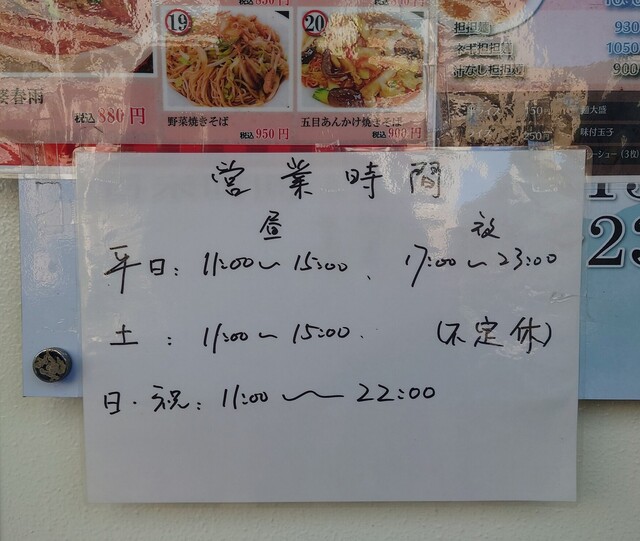 19
20
担担麺 930
ネギ担担麺 1050
汁なし担担麺 900
春雨
税込880円
野菜焼きそば
税込950円
五目あんかけ焼きそば
税込900円
150円
大盛
250円
味付玉子
チャーシュー(3枚)
営業時間
昼 夜
平日: 11:00〜15:00、 17:00〜23:00
土: 11:00〜15:00. (不定休)
日・祝: 11:00〜22:00
23